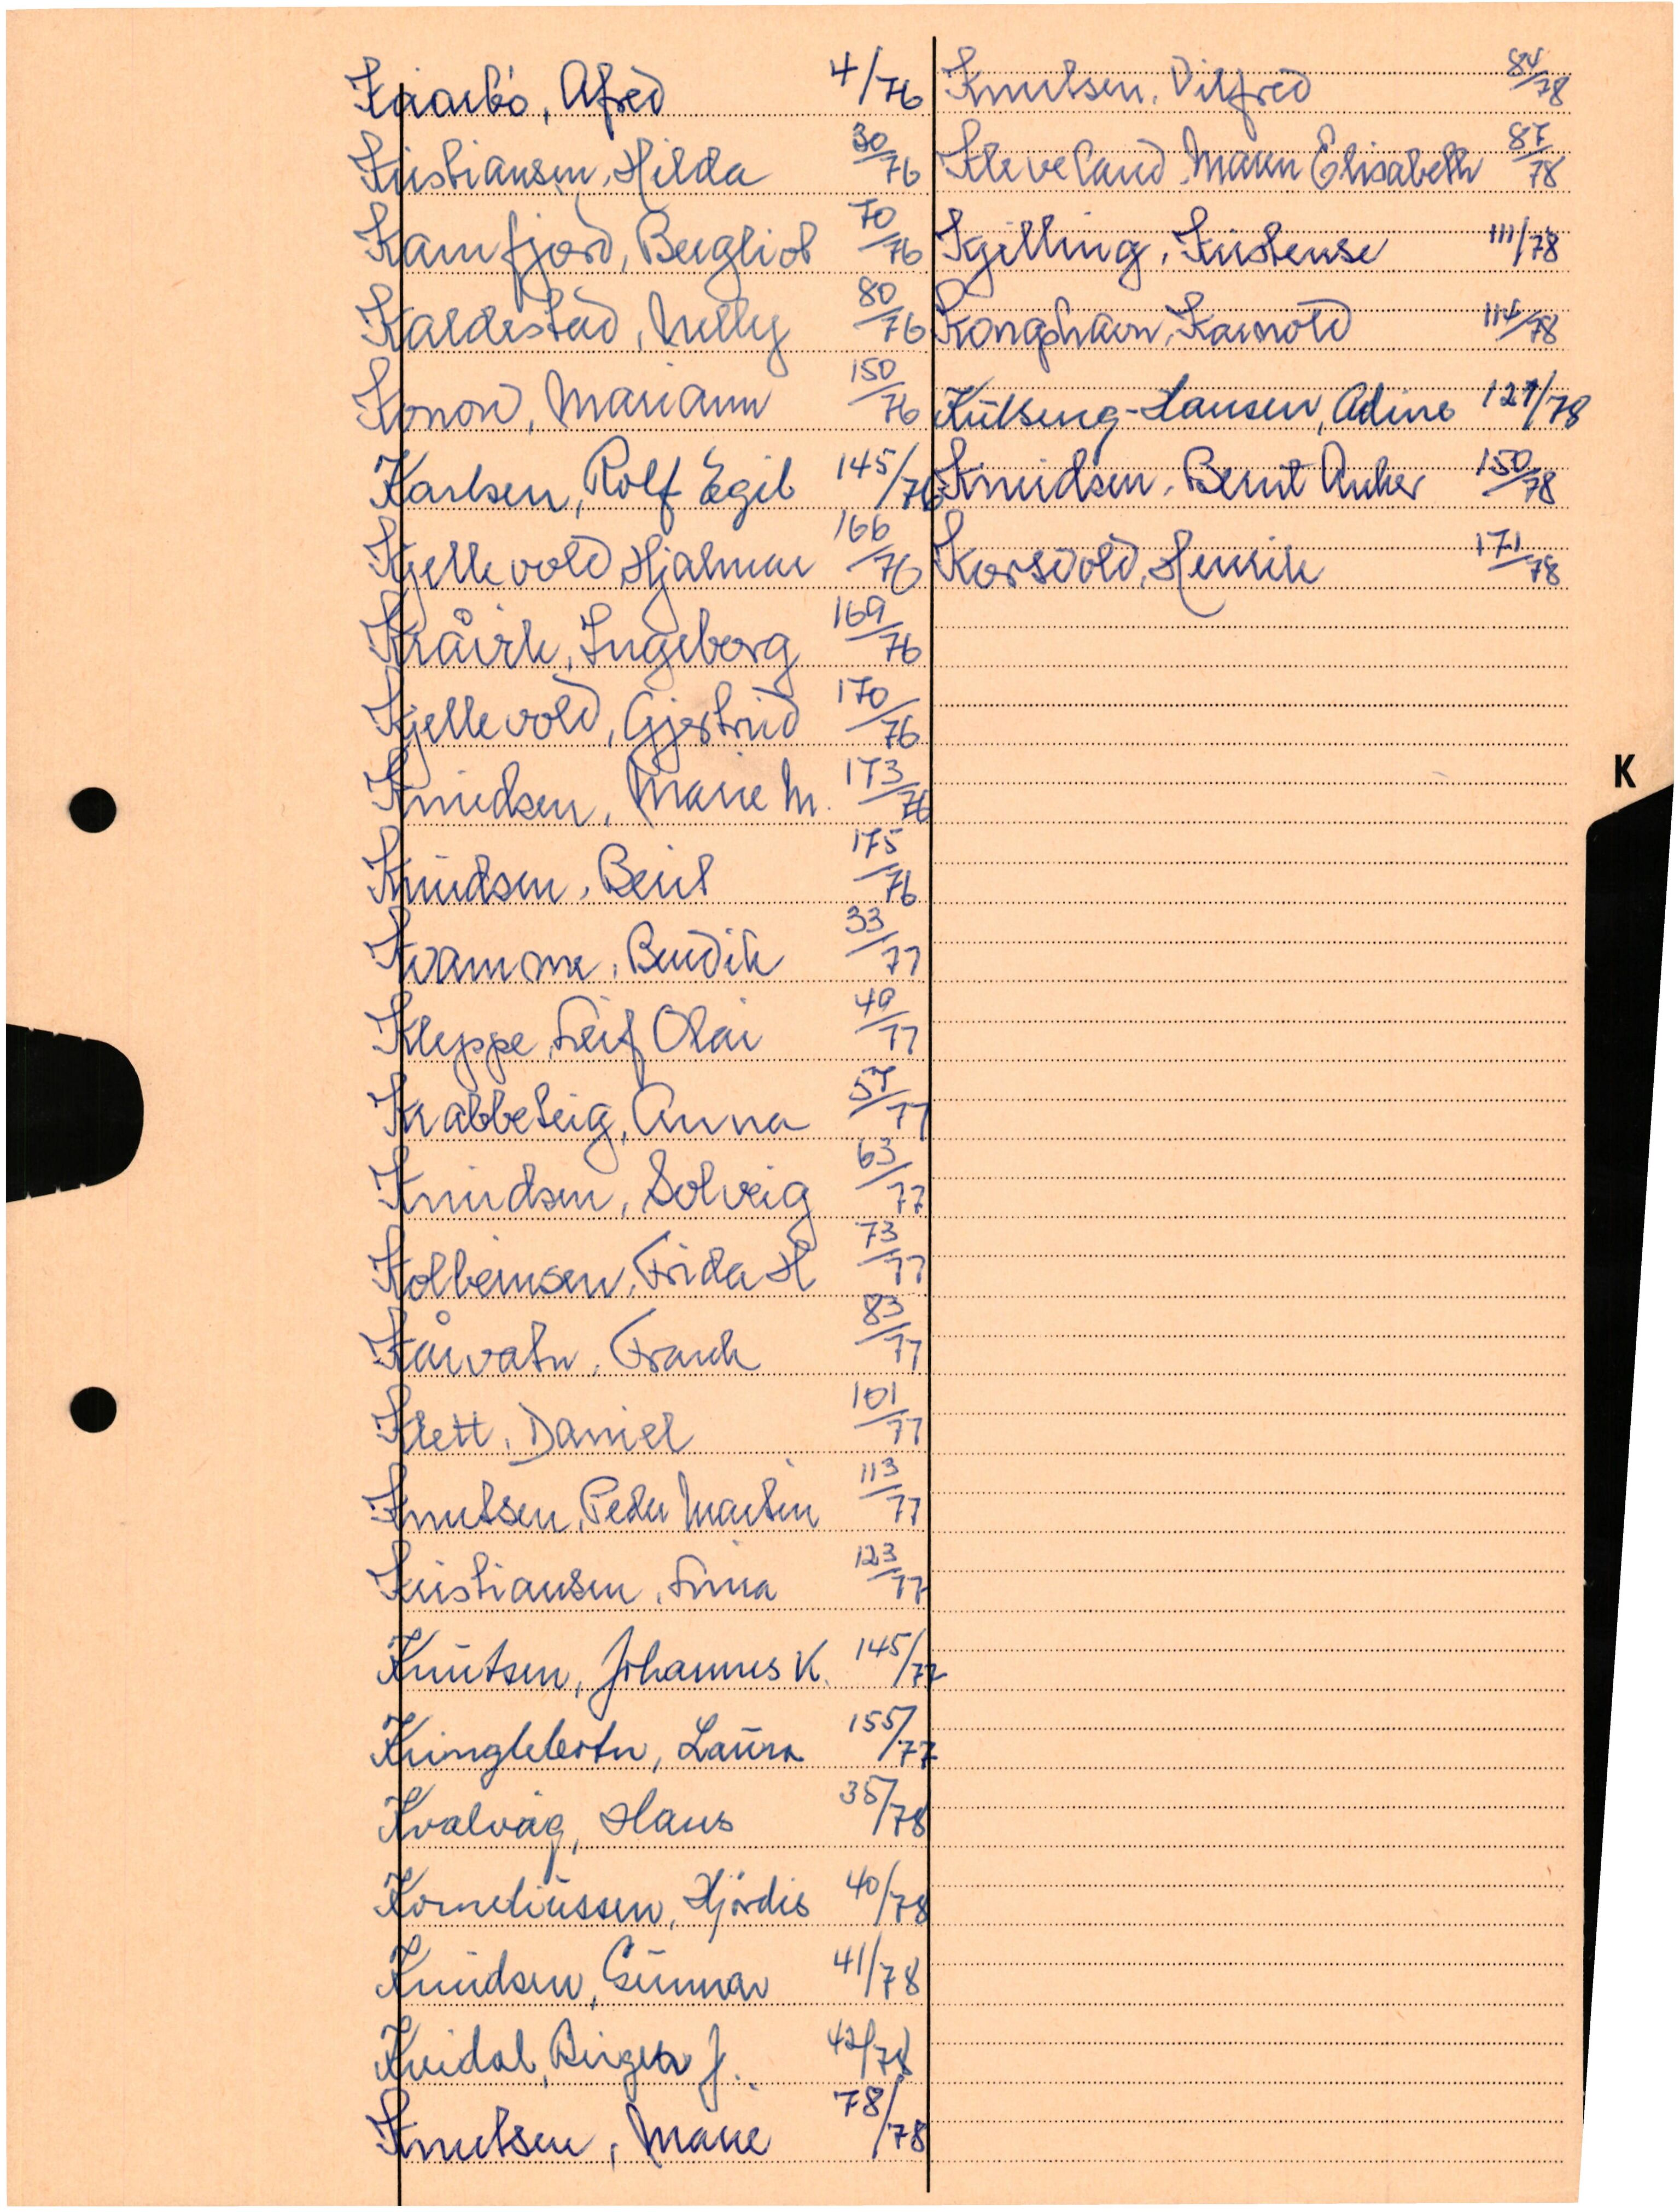 Kaarbö, Afred 4/76
Kristiansen, Hilda 30/76
Kamfjord, Bergliot 70/76
Kaldestad, Nelly 80/76
Konow, Mariann 150/76
Karlsen, Rolf Egil 145/76
Kjellevold, Hjalmar 166/76
Kråvik, Ingeborg 169/76
Kjellevold, Gjertrud 170/76
Knudsen, Marie M. 173/76
Knudsen, Berit 175/76
Kvamme, Bendik 33/77
Kleppe, Leif Olai 49/77
Krabbeteig, Anna 57/77
Knudsen, Solveig 63/77
Kolbeinsen, Frida H 73/77
Kårvatn, Frank 83/77
Klett, Daniel 101/77
Knutsen, Peder Martin 113/77
Kristiansen, Lina 123/77
Knutsen, Johannes K. 145/77
Kringlebotn, Laura 155/77
Kvalvåg, Hans 35/78
Korneliussen, Hjördis 40/78
Knudsen, Gunnar 41/78
Kvidal, Birger J. 42/78
Knutsen, Marie 78/78
Knutsen, Vilfred 84/78
Kleveland, Maren Elisabeth 87/78
Kjilling, Kristense 111/78
Kongshavn, Karnold 114/78
Külseng-Hansen, Adine 127/78
Knudsen, Bernt Anker 150/78
Korsvold, Henrik 171/78
K